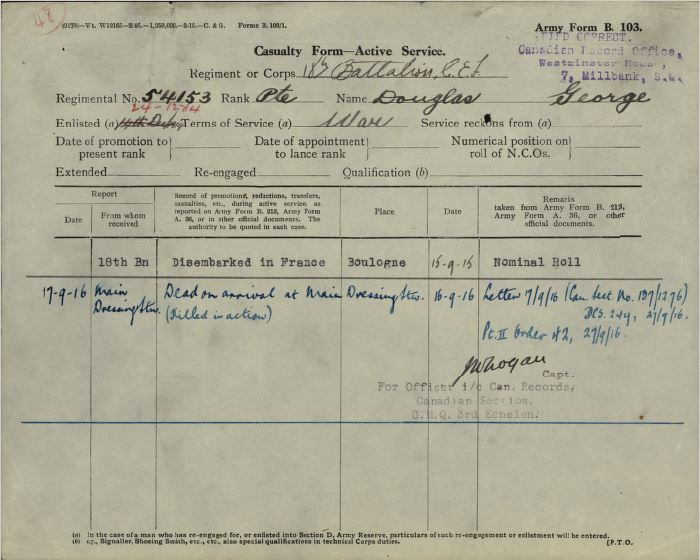 48
(9178)—Wt. W12165—2146.—1,250,000.—2-15.—C. & G. Forms B. 103/1.
Army Form B. 103.
CORRECT.
Canadian Record Office,
Westminster House,
7, Millbank, S.W.
Casualty Form—Active Service.
Regiment or Corps 18th Battalion, C.E.F.
Regimental No. 54153 Rank Pte Name Douglas George
24-12-14
Enlisted (a) Terms of Service (a) War Service reckons from (a)
Date of promotion to present rank } Date of appointment to lance rank } Numerical position on roll of N.C.Os. }
Extended Re-engaged Qualification (b)
Report
Date
From whom received
Record of promotions, reductions, transfers, casualties, etc., during active service, as reported on Army Form B. 213, Army Form A. 36, or in other official documents. The authority to be quoted in each case.
Place
Date
Remarks
taken from Army Form B. 213, Army Form A. 36, or other official documents.
18th Bn Disembarked in France Boulogne 15-9-15 Nominal Roll
17-9-16 Main Dressing Stn. Dead on arrival at Main Dressing Stn. 16-9-16 Letter 17/9/16 (Can. Sect. No. 137/1276)
(Killed in action) DCS. 249, 27/9/16.
Pt. II Order 42, 27/9/16.
Capt.
For Officer i/c Can. Records,
Canadian Section.
G.H.Q. 3rd Echelon.
(a) In the case of a man who has re-engaged for, or enlisted into Section D, Army Reserve, particulars of such re-engagement or enlistment will be entered.
(b) e.g., Signaller, Shoeing Smith, etc., etc., also special qualifications in technical Corps duties.
[P.T.O.